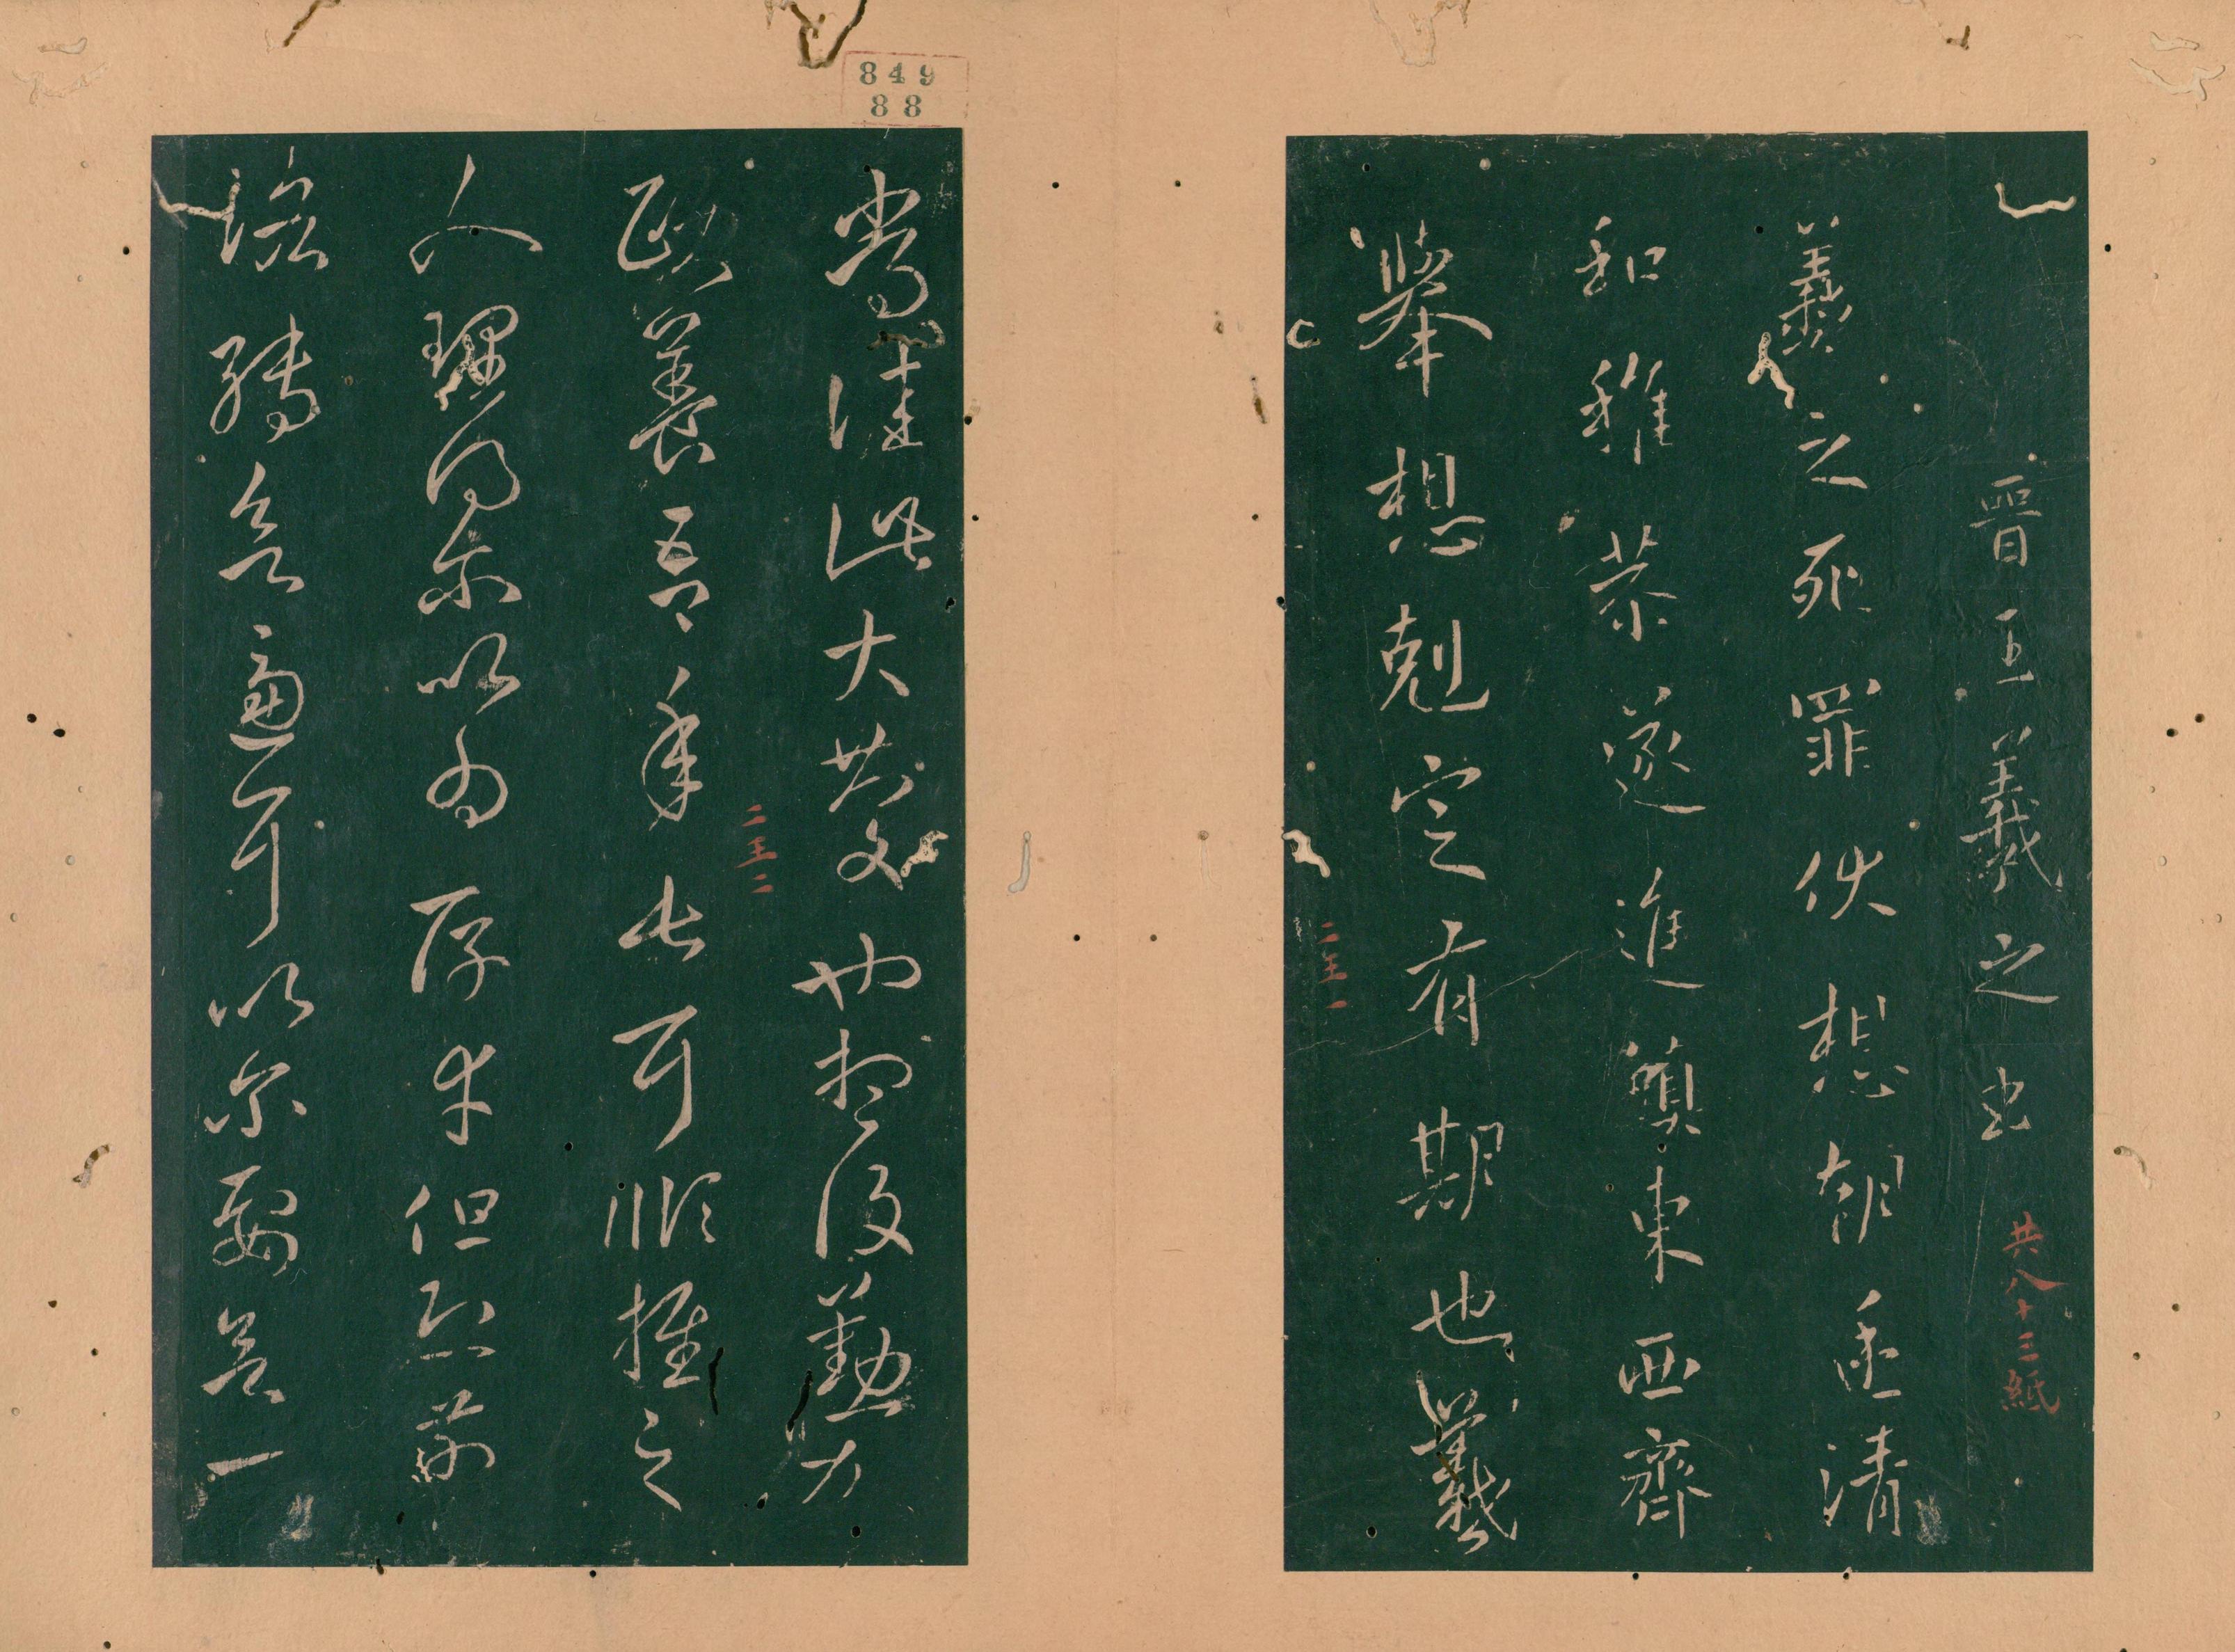 晉王羲之書
共八十三紙
羲之死罪伏想朝廷清
和稚恭遂進鎮東西齊
舉想剋定有期也羲
二王一
849
88
常佳此大慶也想復勤加
二王二
頤養吾年垂耳順推之
人理得爾以為厚幸但恐前
路轉欲逼耳以爾要欲一